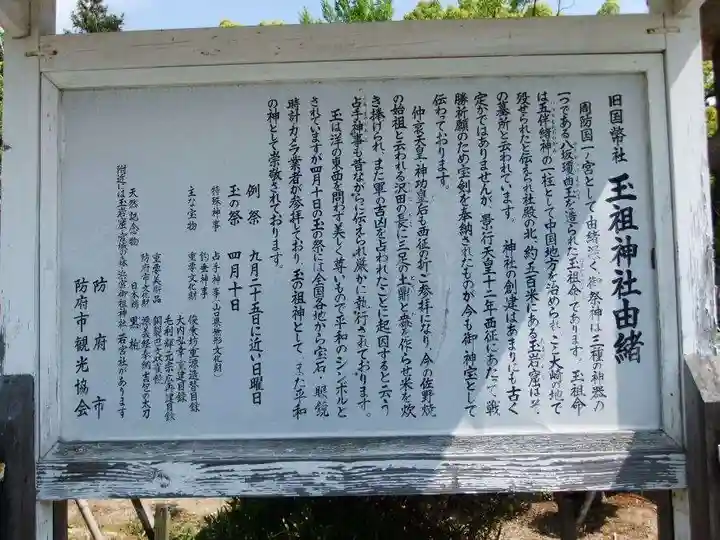 旧国幣社 玉祖神社由緒
周防国一ノ宮として由緒深く、御祭神は三種の神器の
一つである八坂瓊曲玉を造られた玉祖命であります。玉祖命
は五伴緒神の一柱として中国地方を治められ、ここ大崎の地で
歿せられたと伝えられ社殿の北、約五百米にある玉岩窟はそ
の墓所と云われています。 神社の創建はあまりにも古く
定かではありませんが、景行天皇十二年西征にあたって戦
勝祈願のため宝剣を奉納されたものが今も御神宝として
伝わっております。
仲哀天皇・神功皇后も西征の折ご参拝になり、今の佐野焼
の始祖と云われる沢田の長に三足の土鼎と盤を作らせ米を炊
き捧げられ、また軍の吉凶を占われたことに起因すると云う
占手神事も昔ながらに伝えられ厳かに執行されております。
玉は洋の東西を問わず美しく尊いもので平和のシンボルと
されていますが四月十日の玉の祭には全国各地から宝石・眼鏡
時計・カメラ業者が参拝しており、玉の祖神として、また平和
の神として崇敬されております。
例祭 九月二十五日に近い日曜日
玉の祭 四月十日
特殊神事 占手神事(山口県無形文化財)
釣垂神事
主な宝物 重要文化財 俊乗坊重源造営目録
大内義隆寄進目録
毛利輝元宗広施目録
重要美術品
防府市文化財
源義経奉納吉包の太刀
天然記念物 日本鶏 黒柏
附近には玉岩窟 浜宮御祖神社 若宮社があります
防府市
防府市観光協会